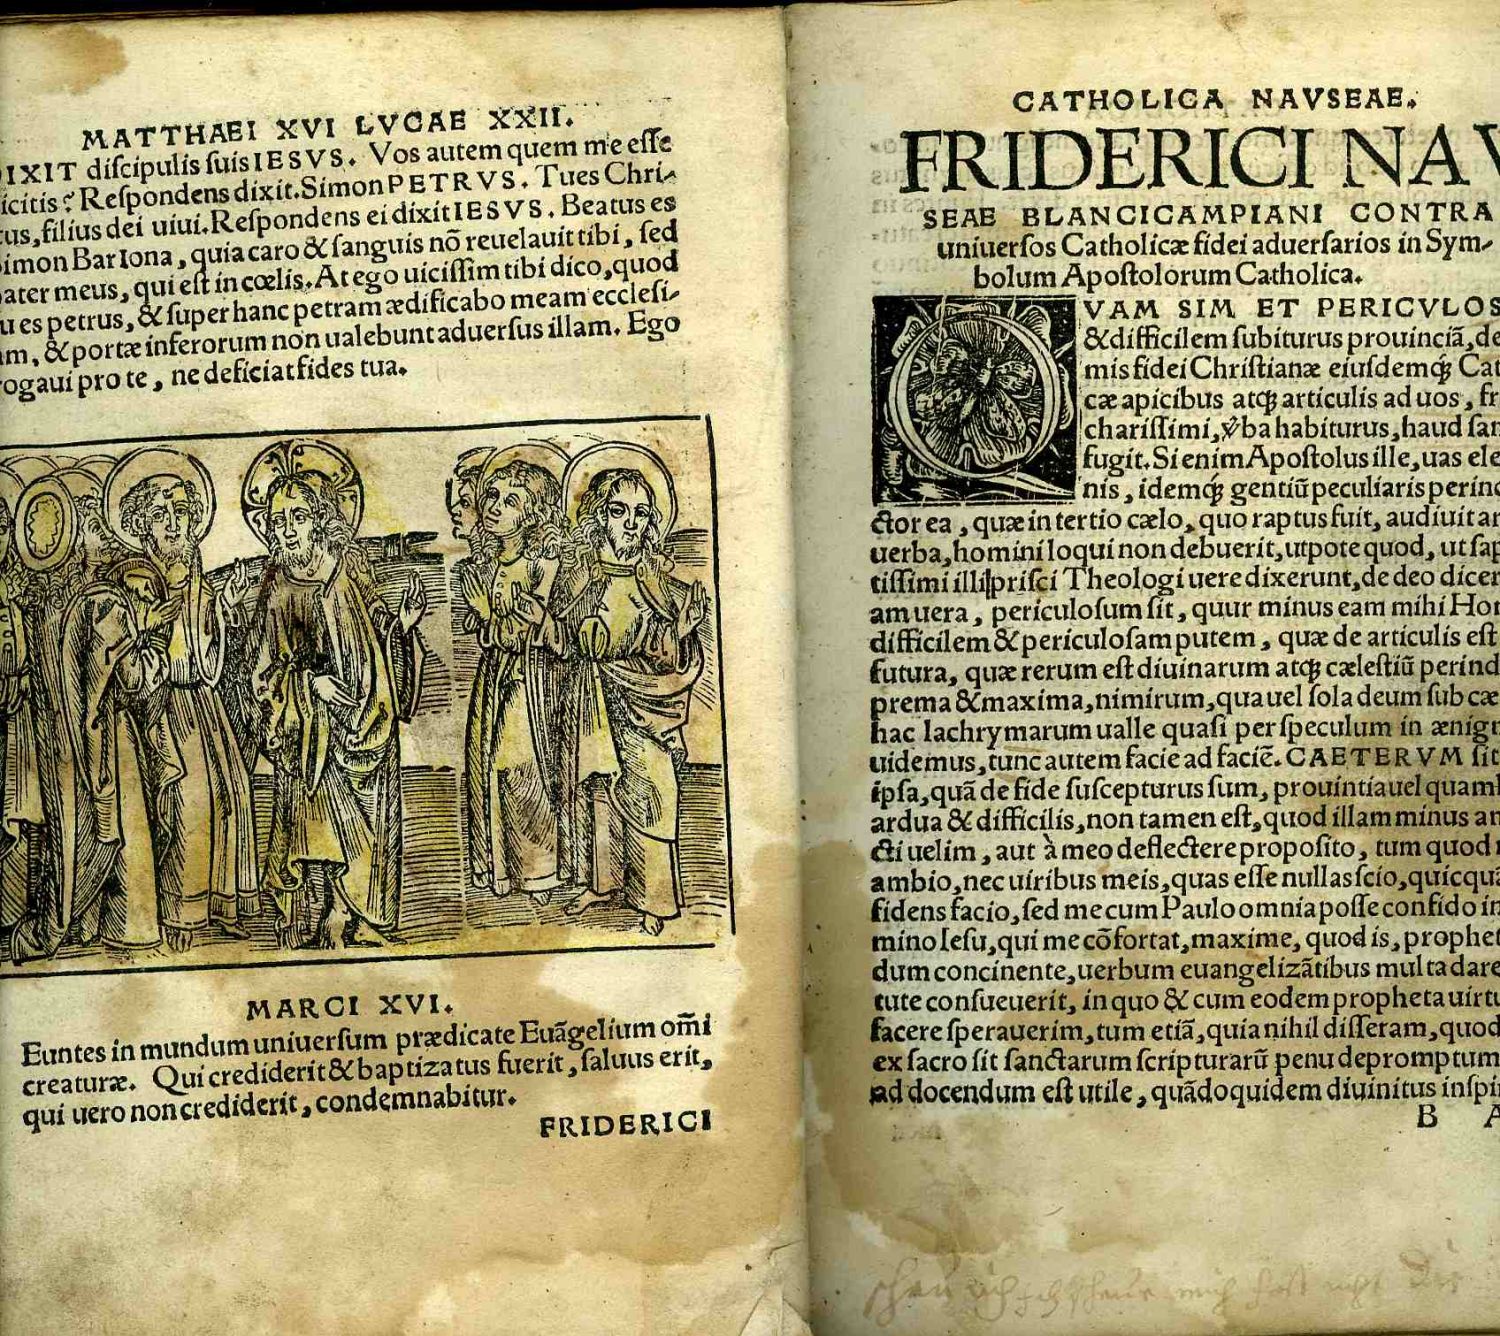 MATTHAEI XVI LVCAE XXII.
IXIT diſcipulis ſuis IESVS. Vos autem quem me eſſe
icitis? Reſpondens dixit. Simon PETRVS. Tu es Chri-
us, filius dei uiui. Reſpondens ei dixit IESVS. Beatus es
imon Bar Iona, quia caro & ſanguis nō reuelauit tibi, ſed
ater meus, qui eſt in cœlis. At ego uiciſſim tibi dico, quod
u es petrus, & ſuper hanc petram ædificabo meam eccleſi-
m, & portæ inferorum non ualebunt aduerſus illam. Ego
rogaui pro te, ne deficiat fides tua.
MARCI XVI.
Euntes in mundum uniuerſum prædicate Euāgelium om̄i
creaturæ. Qui crediderit & baptizatus fuerit, ſaluus erit,
qui uero non crediderit, condemnabitur.
FRIDERICI
CATHOLICA NAVSEAE.
FRIDERICI NAV
SEAE BLANCICAMPIANI CONTRA
uniuerſos Catholicæ fidei aduerſarios in Sym-
bolum Apoſtolorum Catholica.
QVAM SIM ET PERICVLOS
& difficilem ſubiturus prouinciā, de
mis fidei Chriſtianæ eiuſdemq́; Cat
cæ apicibus atq; articulis ad uos, fr
chariſſimi, v̂ba habiturus, haud ſan
fugit. Si enim Apoſtolus ille, uas ele
nis, idemq́; gentiū peculiaris perind
ctor ea, quæ in tertio cælo, quo raptus fuit, audiuit ar
uerba, homini loqui non debuerit, utpote quod, ut ſap
tiſſimi illi priſci Theologi uere dixerunt, de deo dicer
am uera, periculoſum ſit, quur minus eam mihi Hor
difficilem & periculoſam putem, quæ de articulis eſt
futura, quæ rerum eſt diuinarum atq; cæleſtiū perind
prema & maxima, nimirum, qua uel ſola deum ſub cæ
hac lachrymarum ualle quaſi per ſpeculum in ænigm
uidemus, tunc autem facie ad faciē. CAETERVM ſit
ipſa, quā de fide ſuſcepturus ſum, prouintia uel quaml
ardua & difficilis, non tamen eſt, quod illam minus an
cti uelim, aut à meo deflectere propoſito, tum quod n
ambio, nec uiribus meis, quas eſſe nullas ſcio, quicquā
fidens facio, ſed mecum Paulo omnia poſſe confido in
mino Ieſu, qui me cōfortat, maxime, quod is, prophet
dum concinente, uerbum euangelizātibus multa dare
tute conſueuerit, in quo & cum eodem propheta uirtu
facere ſperauerim, tum etiā, quia nihil diſſeram, quod
ex ſacro ſit ſanctarum ſcripturarū penu depromptum
ad docendum eſt utile, quādoquidem diuinitus inſpir
B A